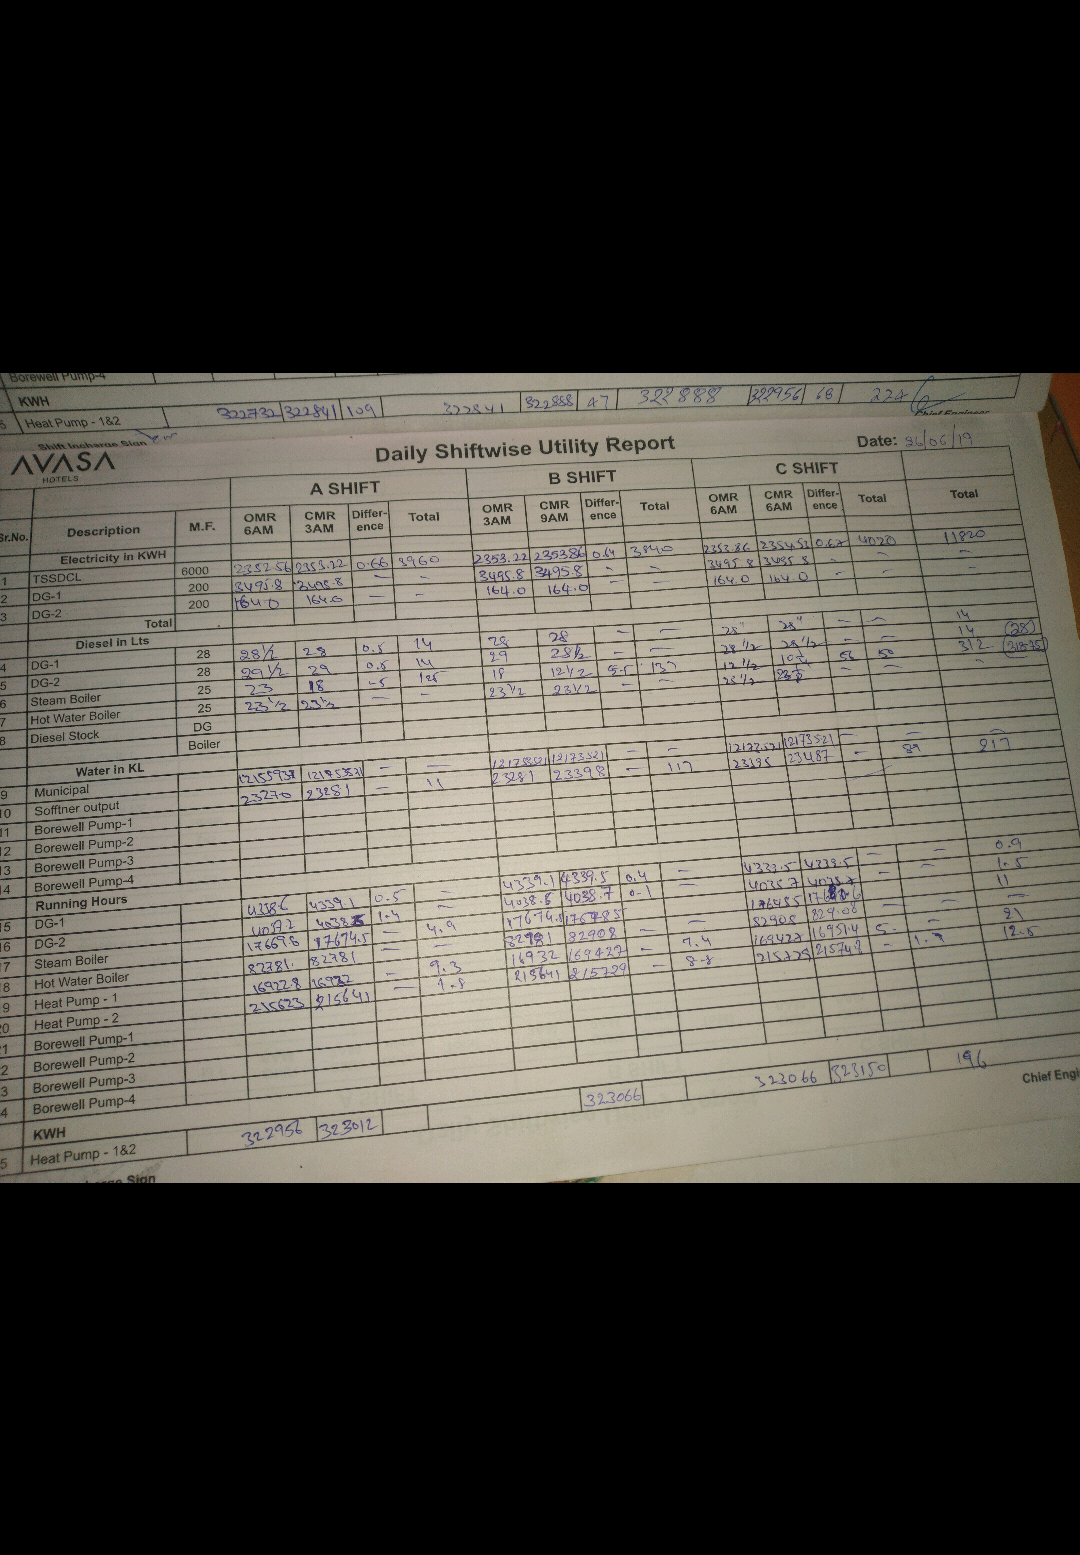 Borewell Pump-4
KWH
Heat Pump - 1&2 322732 322841 109 322841 322888 47 322888 322956 68 224
Shift Incharge Sign
Chief Engineer
AVASA
HOTELS
Daily Shiftwise Utility Report
Date: 26/06/19
A SHIFT B SHIFT C SHIFT
Sr.No. Description M.F. OMR 6AM CMR 3AM Differ-ence Total OMR 3AM CMR 9AM Differ-ence Total OMR 6AM CMR 6AM Differ-ence Total Total
Electricity in KWH
1 TSSDCL 6000 2352.56 2353.22 0.66 3960 2353.22 235386 0.64 3840 2353.86 235452 0.67 4020 11820
2 DG-1 200 3495.8 3495.8 - - 3495.8 3495.8 - - 3495.8 3495.8 - - -
3 DG-2 200 164.0 164.0 - - 164.0 164.0 - - 164.0 164.0 - - -
Total
Diesel in Lts
4 DG-1 28 28½ 28 0.5 14 28 28 - - 28" 28" - - 14
5 DG-2 28 29½ 29 0.5 14 29 28½ - - 28½ 28½ - - 14 (28)
6 Steam Boiler 25 23 18 -5 125 18 12½ 5.5 137 12½ 50 312
7 Hot Water Boiler 25 23½ 23½ - - 23½ 23½ - - - - -
8 Diesel Stock DG
Boiler
Water in KL
9 Municipal - - 12173521 12173521 - - 12173521 - - -
10 Sofftner output 23270 23281 - 11 23281 23398 - 117 23395 23487 - 89 217
11 Borewell Pump-1
12 Borewell Pump-2
13 Borewell Pump-3
14 Borewell Pump-4
Running Hours
15 DG-1 4338.6 4339.1 0.5 - 4339.1 4339.5 0.4 - 4339.5 4339.5 - - 0.9
16 DG-2 1.4 - 4038.6 4038.7 0.1 - 4038.7 - - 1.5
17 Steam Boiler 17669.6 17674.5 - 4.9 176485 11
18 Hot Water Boiler 82781. 82781 - - 82908 82908 82908 -
19 Heat Pump - 1 16922.8 16932 - 9.3 16932 169427 - 7.4 169427 169514 5. - 21
20 Heat Pump - 2 215623 215641 - 1.8 215641 215729 - 8.8 215729 215748 - 1.9 12.5
21 Borewell Pump-1
22 Borewell Pump-2
23 Borewell Pump-3
24 Borewell Pump-4
KWH
25 Heat Pump - 1&2 322956 323012 323066 323066 323150 196
Chief Engi
charge Sign